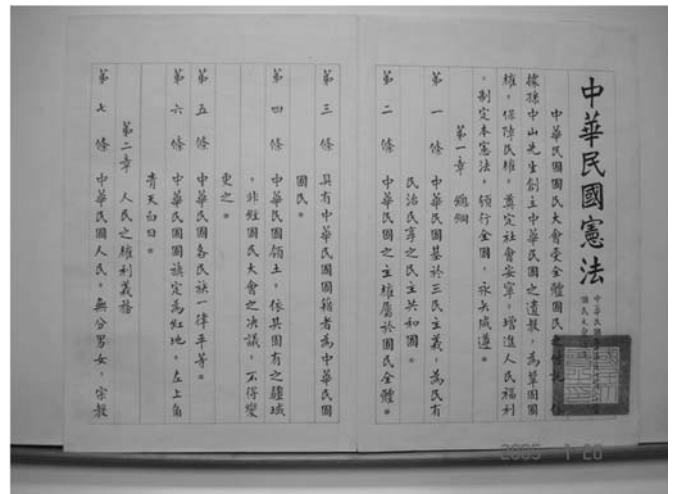 中華民國憲法
中華民國
國民大會
中華民國國民大會受全體國民之付託,依
據孫中山先生創立中華民國之遺教,為鞏固國
權,保障民權,奠定社會安寧,增進人民福利
,制定本憲法,頒行全國,永矢咸遵。
第一章 總綱
第一條 中華民國基於三民主義,為民有
民治民享之民主共和國。
第二條 中華民國之主權屬於國民全體。
第三條 具有中華民國國籍者為中華民國
國民。
第四條 中華民國領土,依其固有之疆域
,非經國民大會之決議,不得變
更之。
第五條 中華民國各民族一律平等。
第六條 中華民國國旗定為紅地,左上角
青天白日。
第二章 人民之權利義務
第七條 中華民國人民,無分男女,宗教
2005 1 20